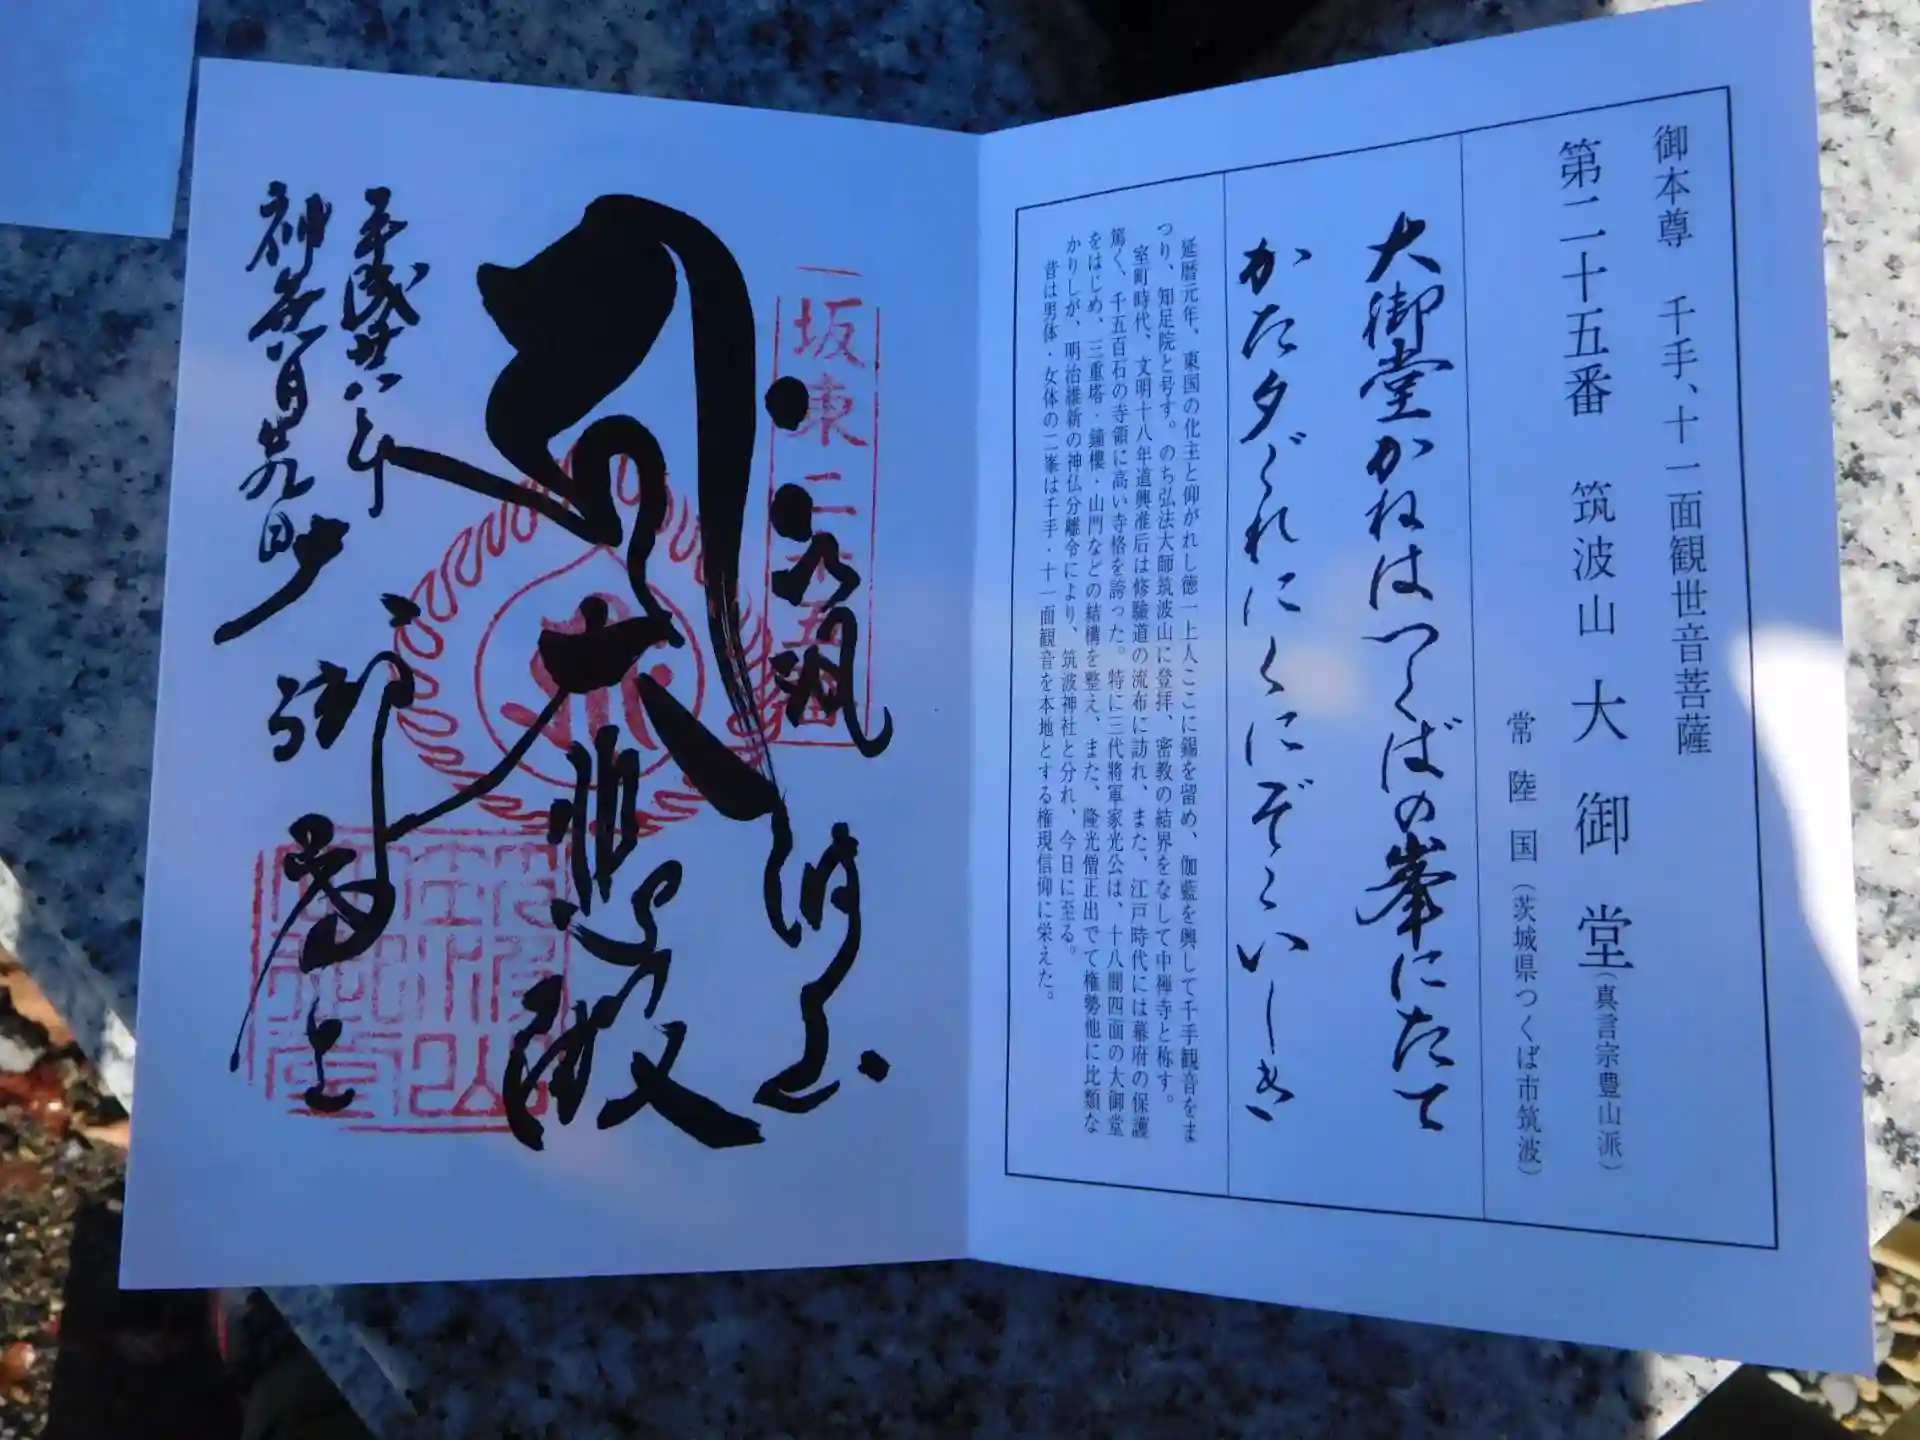 御本尊 千手、十一面観世音菩薩
第二十五番 筑波山大御堂(真言宗豊山派)
常陸国(茨城県つくば市筑波)
大御堂かねはつくばの峯にたて
かた夕ぐれにくにぞこいしき
延暦元年、東国の化主と仰がれし徳一上人ここに錫を留め、伽藍を興して千手観音をま
つり、知足院と号す。のち弘法大師筑波山に登拝、密教の結界をなして中禅寺と称す。
室町時代、文明十八年道興准后は修驗道の流布に訪れ、また、江戸時代には幕府の保護
篤く、千五百石の寺領に高い寺格を誇った。特に三代將軍家光公は、十八間四面の大御堂
をはじめ、三重塔・鐘樓・山門などの結構を整え、また、隆光僧正出でて権勢他に比類な
かりしが、明治維新の神仏分離令により、筑波神社と分れ、今日に至る。
昔は男体・女体の二峯は千手・十一面観音を本地とする権現信仰に栄えた。
坂東二十五番
筑波山
大悲殿
大御堂
平成廿八年